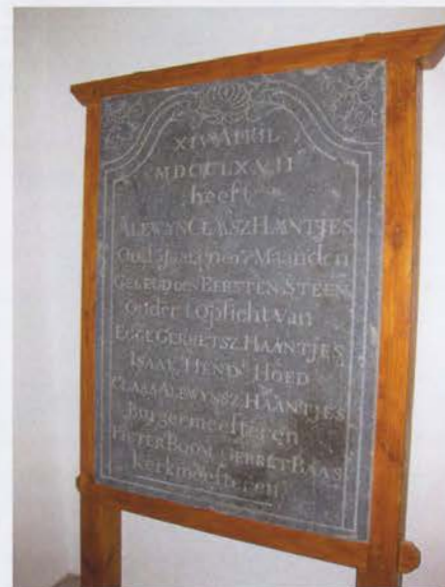 XIV APRIL
MDCCLXVII
heeft
ALEWYN CLAASZ HAANTJES
Oud Jaar en 7 Maanden
GELEID DEN EERSTEN STEEN
onder t Opsicht van
EGGE GERRETSZ HAANTJES
ISAAK HENDK HOED
CLAAS ALEWYNSZ HAANTJES
Burgermeesteren
PIETER BOON GERRET BAAS
Kerkmeesteren